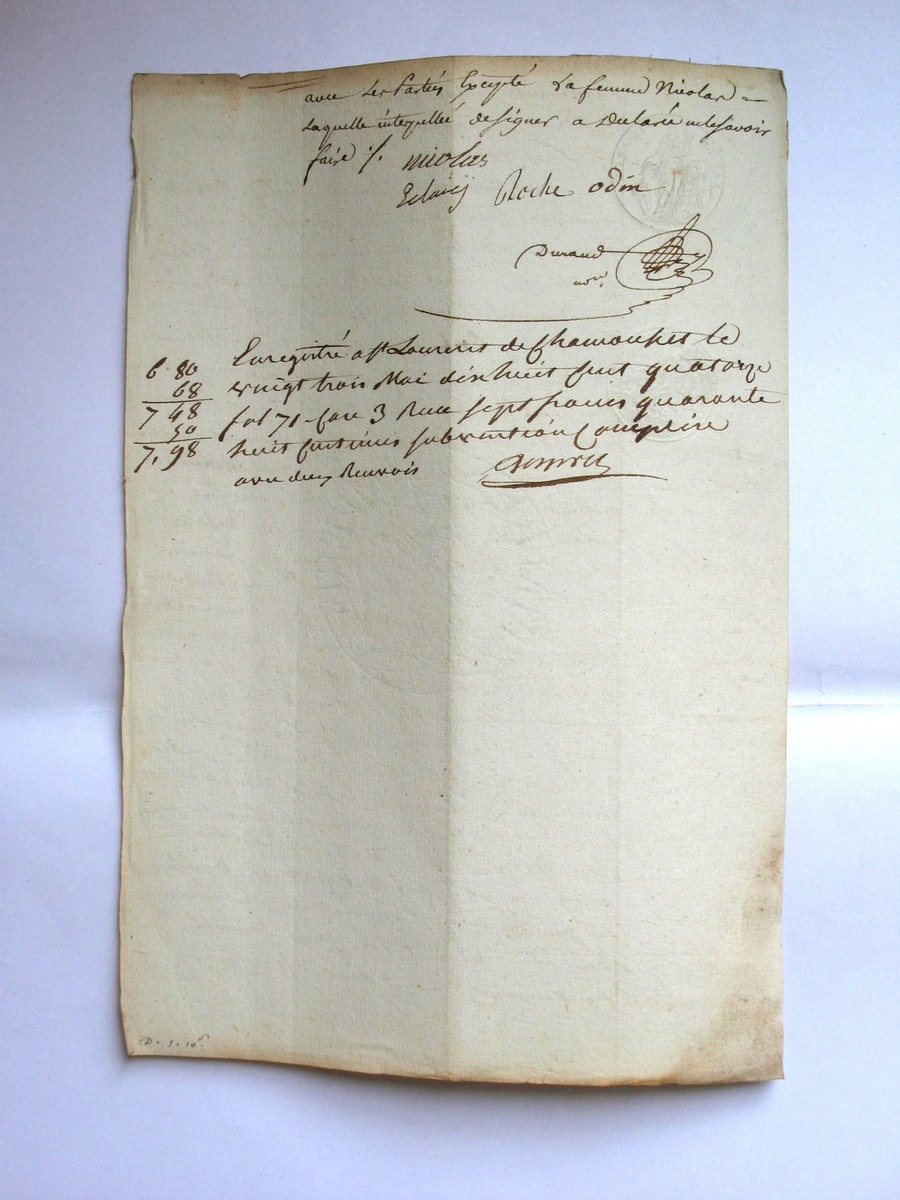 avec les Parties Excepté la femme Nicolas =
Laquelle interpellée de signer a Declarée ne le savoir
faire ./.
nicolas
Eclaircy Roche odin
Durand
not.re
Enregistré a st. Laurent de Chamousset le
vingt trois Mai dix huit cent quatorze
fol 71 case 3 Recu sept francs quarante
huit centimes subvention Comprise
avec deux Renvois
6 80
68
7 48
50
7,98
D. 1. 10